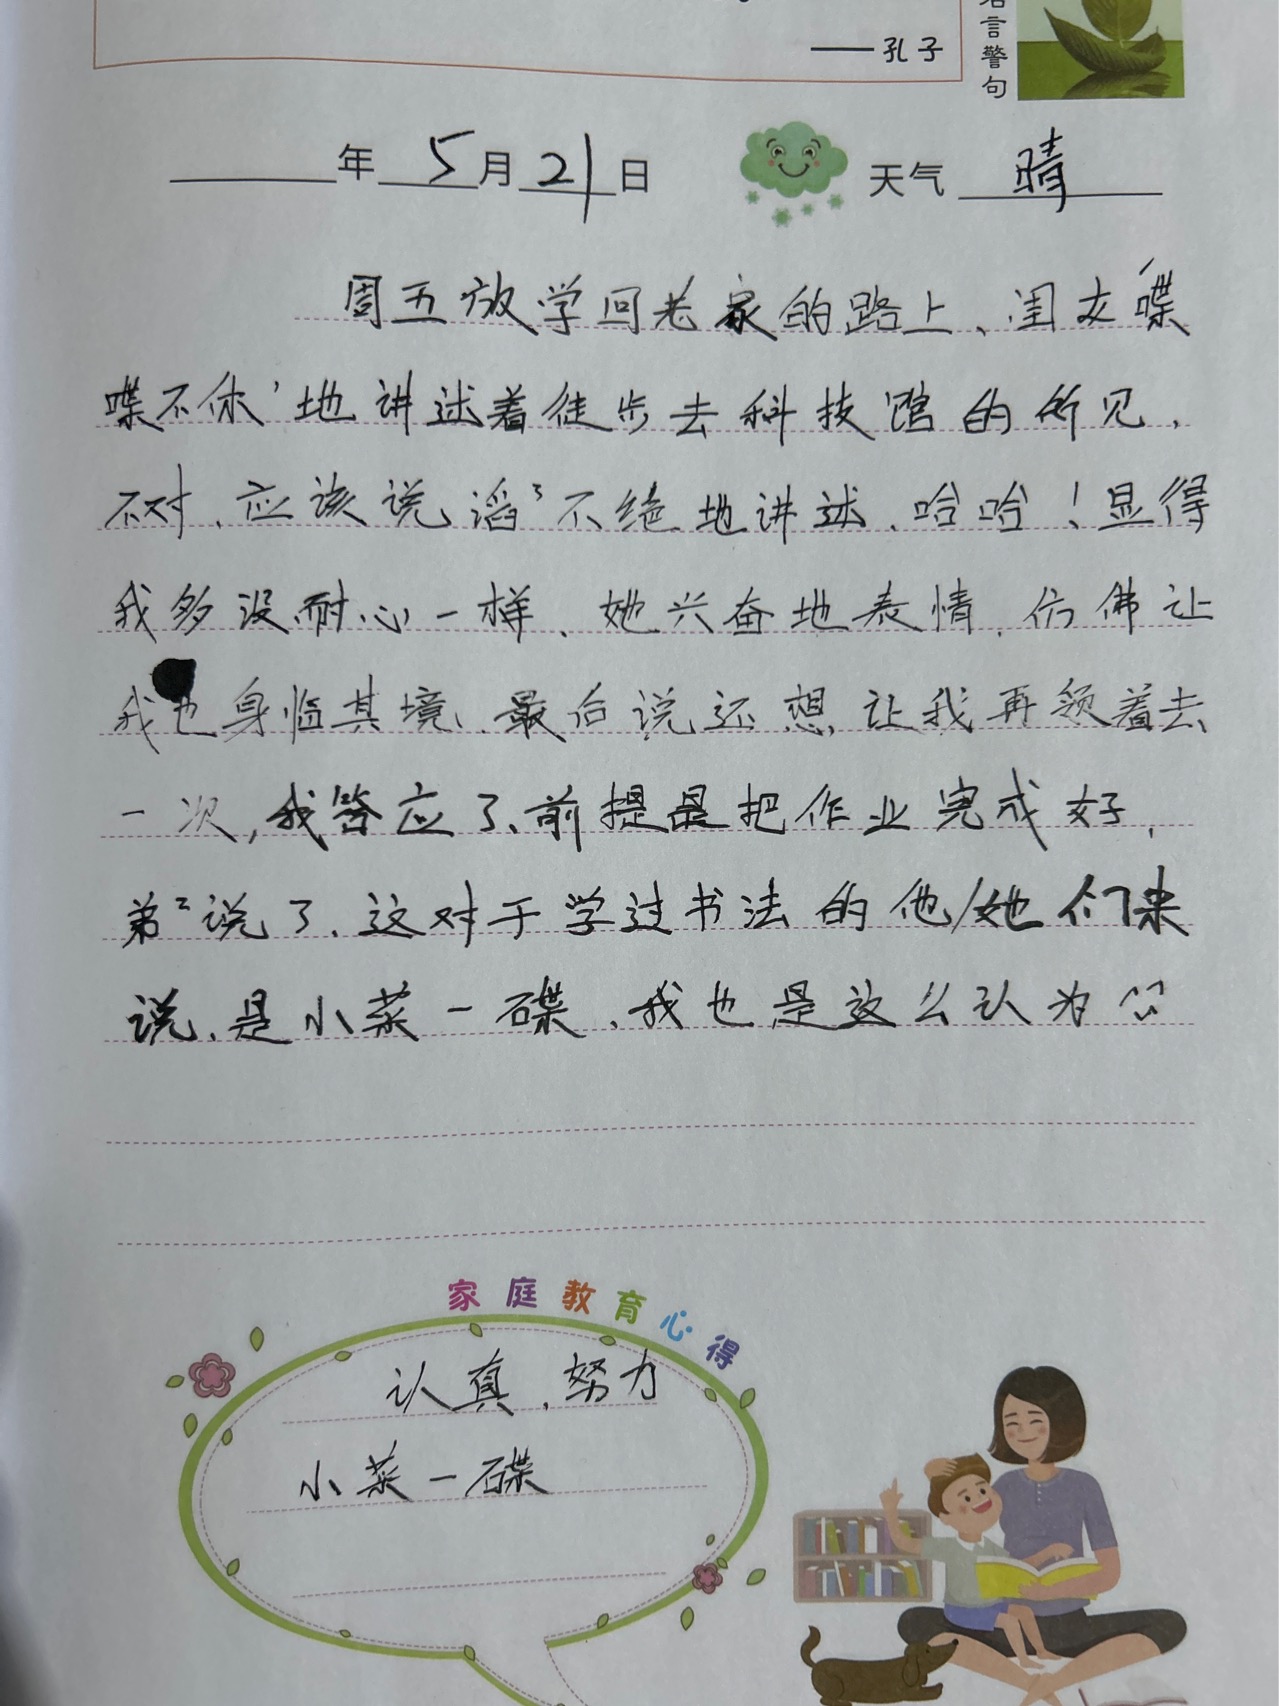 ——孔子
言警句
年 5月21日 天气 晴
周五放学回老家的路上、闺女喋
喋不休,地讲述着徒步去科技馆的所见,
不对、应该说滔ʒ不绝地讲述、哈哈!显得
我多没耐心一样、她兴奋地表情、仿佛让
我也身临其境、最后说还想让我再领着去
一次,我答应了、前提是把作业完成好,
弟²说了、这对于学过书法的他/她们来
说、是小菜一碟、我也是这么认为
家庭教育心得
认真、努力
小菜一碟